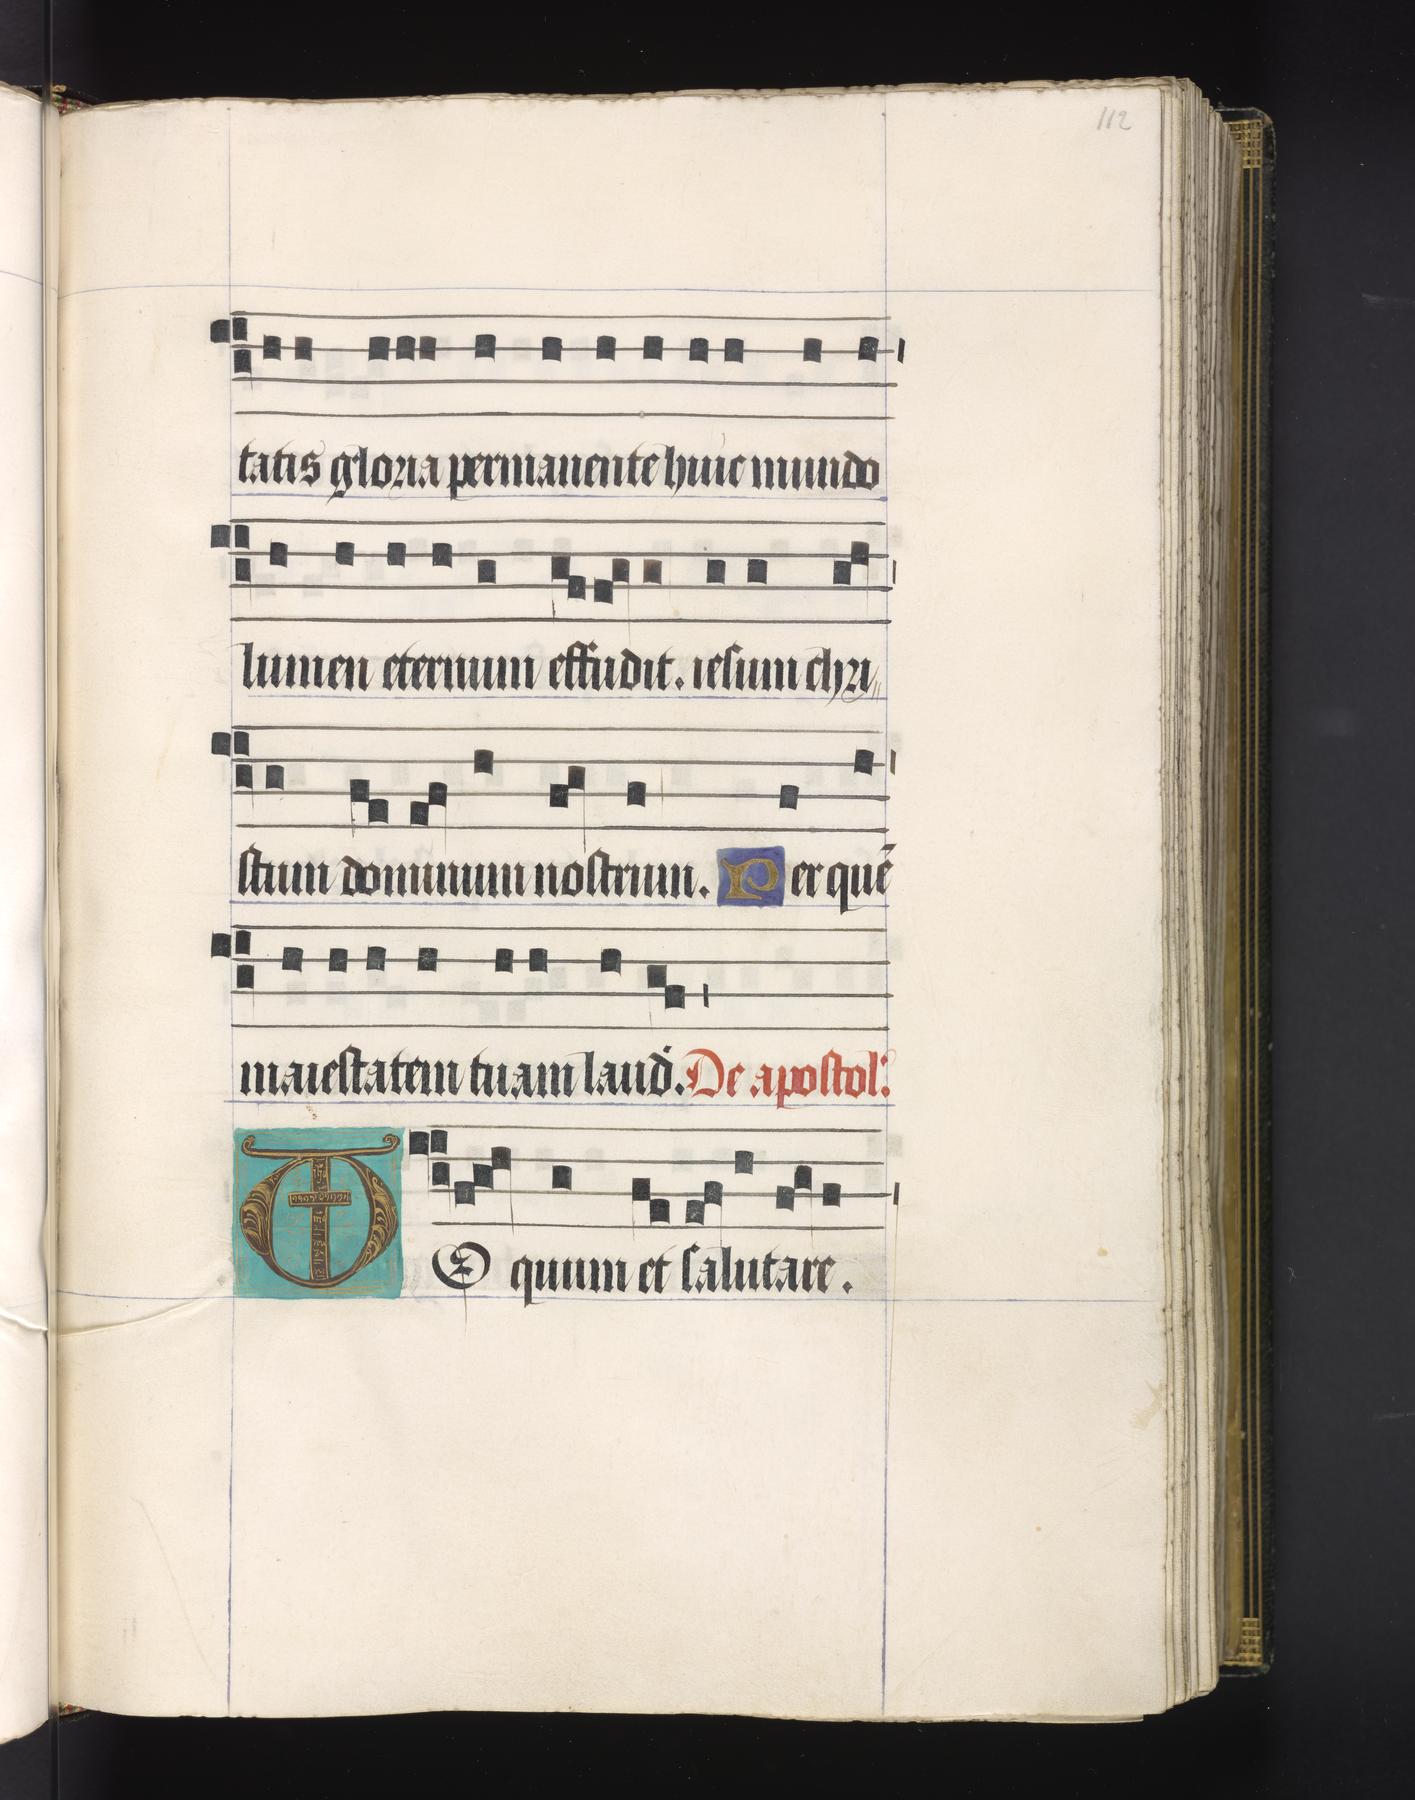 112
tatis gloria permanente huic mundo
lumen eternum effudit. iesum chri
stum dominum nostrum. Per quē
maiestatem tuam laud. De apostol.
Equum et salutare.